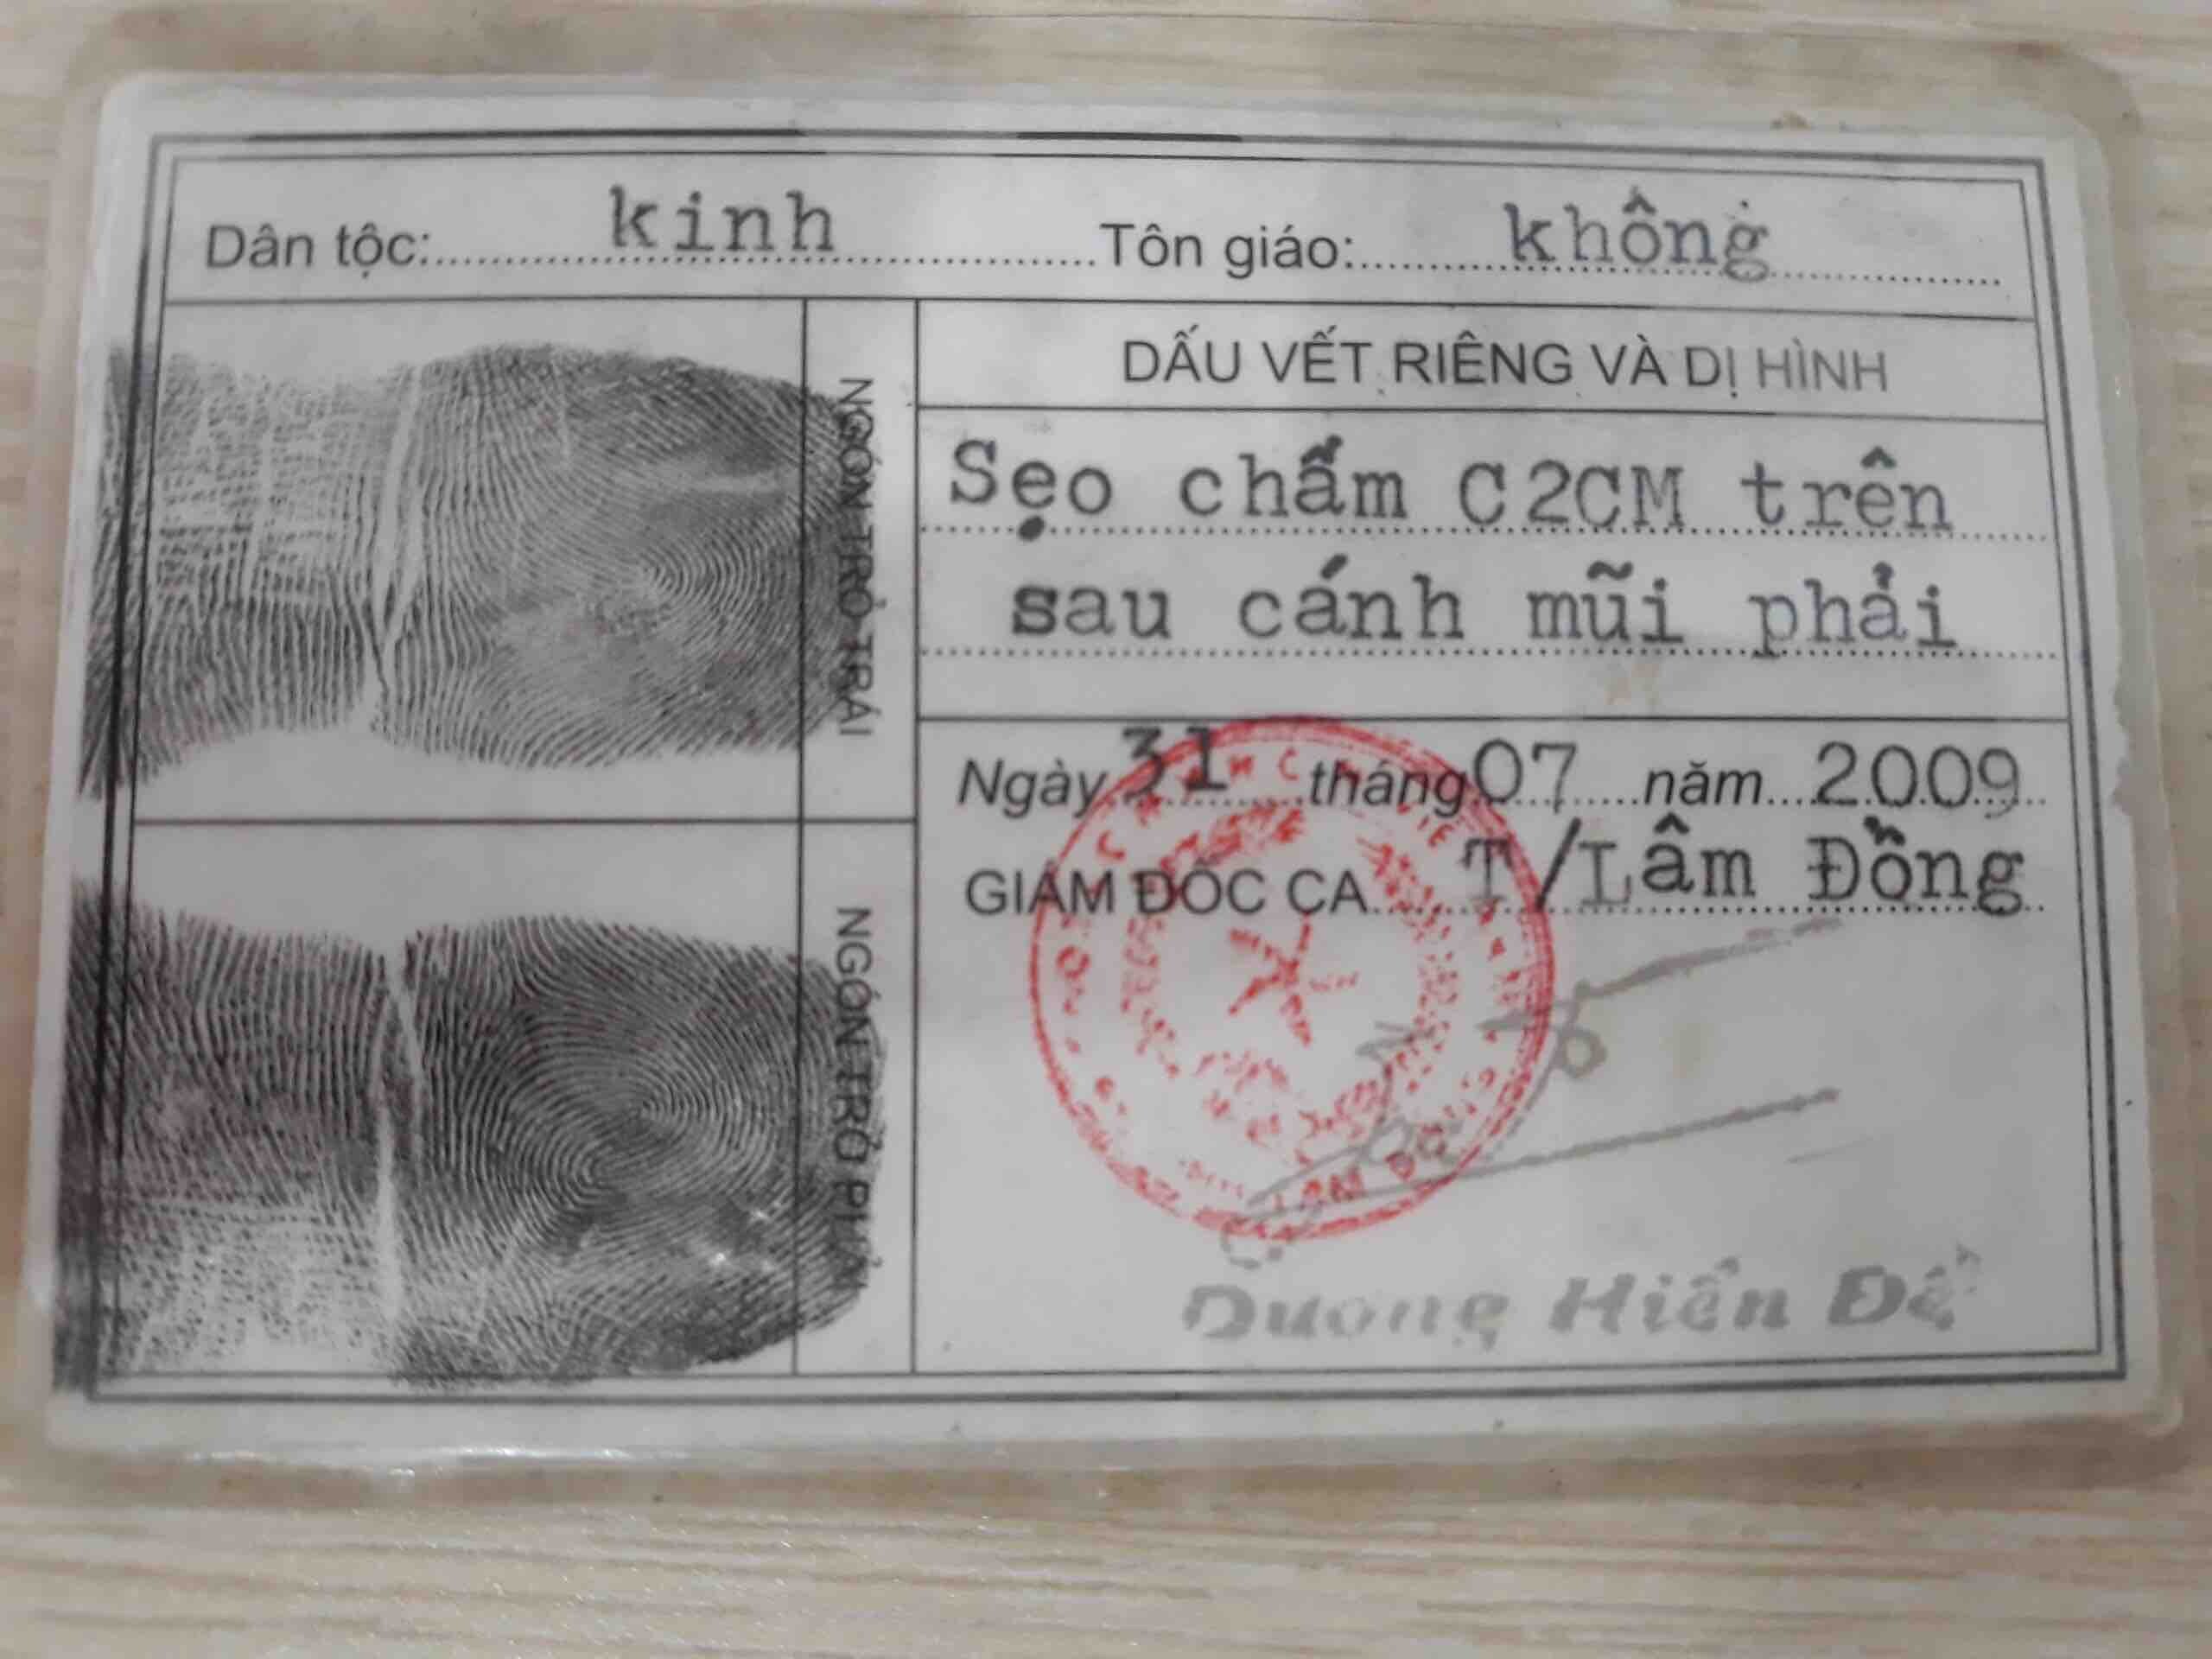 Dân tộc: kinh Tôn giáo: không
NGÓN TRỎ TRÁI
DẤU VẾT RIÊNG VÀ DỊ HÌNH
Sẹo chấm C2CM trên
sau cánh mũi phải
Ngày 31 tháng 07 năm 2009
GIÁM ĐỐC CA T/Lâm Đồng
NGÓN TRỎ PHẢI
Dương Hiền Đề